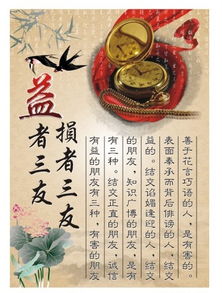 益者三友
損者三友
有益的朋友有三种，有害的朋友
有三种。结交正直的朋友，诚信
的朋友，知识广博的朋友，是有
益的。结交谄媚逢迎的人，结交
表面奉承而背后诽谤的人，结交
善于花言巧语的人，是有害的。